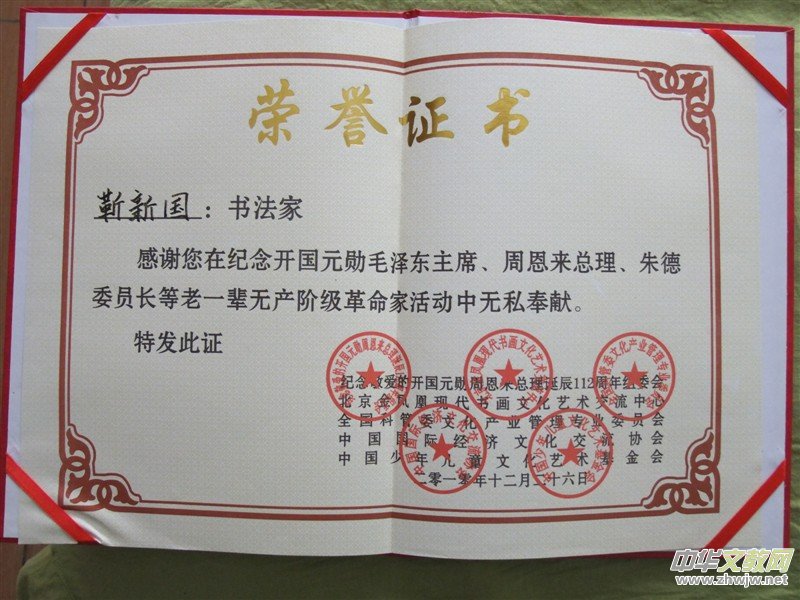 荣誉证书
靳新国：书法家
感谢您在纪念开国元勋毛泽东主席、周恩来总理、朱德
委员长等老一辈无产阶级革命家活动中无私奉献。
特发此证
纪念敬爱的开国元勋周恩来总理诞辰112周年组委会
北京金凤凰现代书画文化艺术交流中心
全国科管委文化产业管理专业委员会
中国国际经济文化交流协会
中国少年儿童文化艺术基金会
二零一零年十二月二十六日
中华文教网
www.zhwjw.net